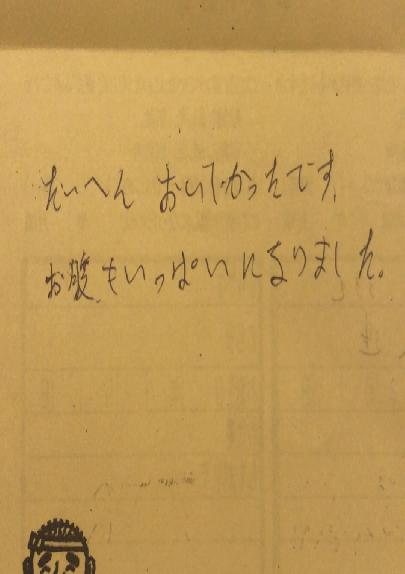 たいへん おいしかったです。
お腹もいっぱいになりました。